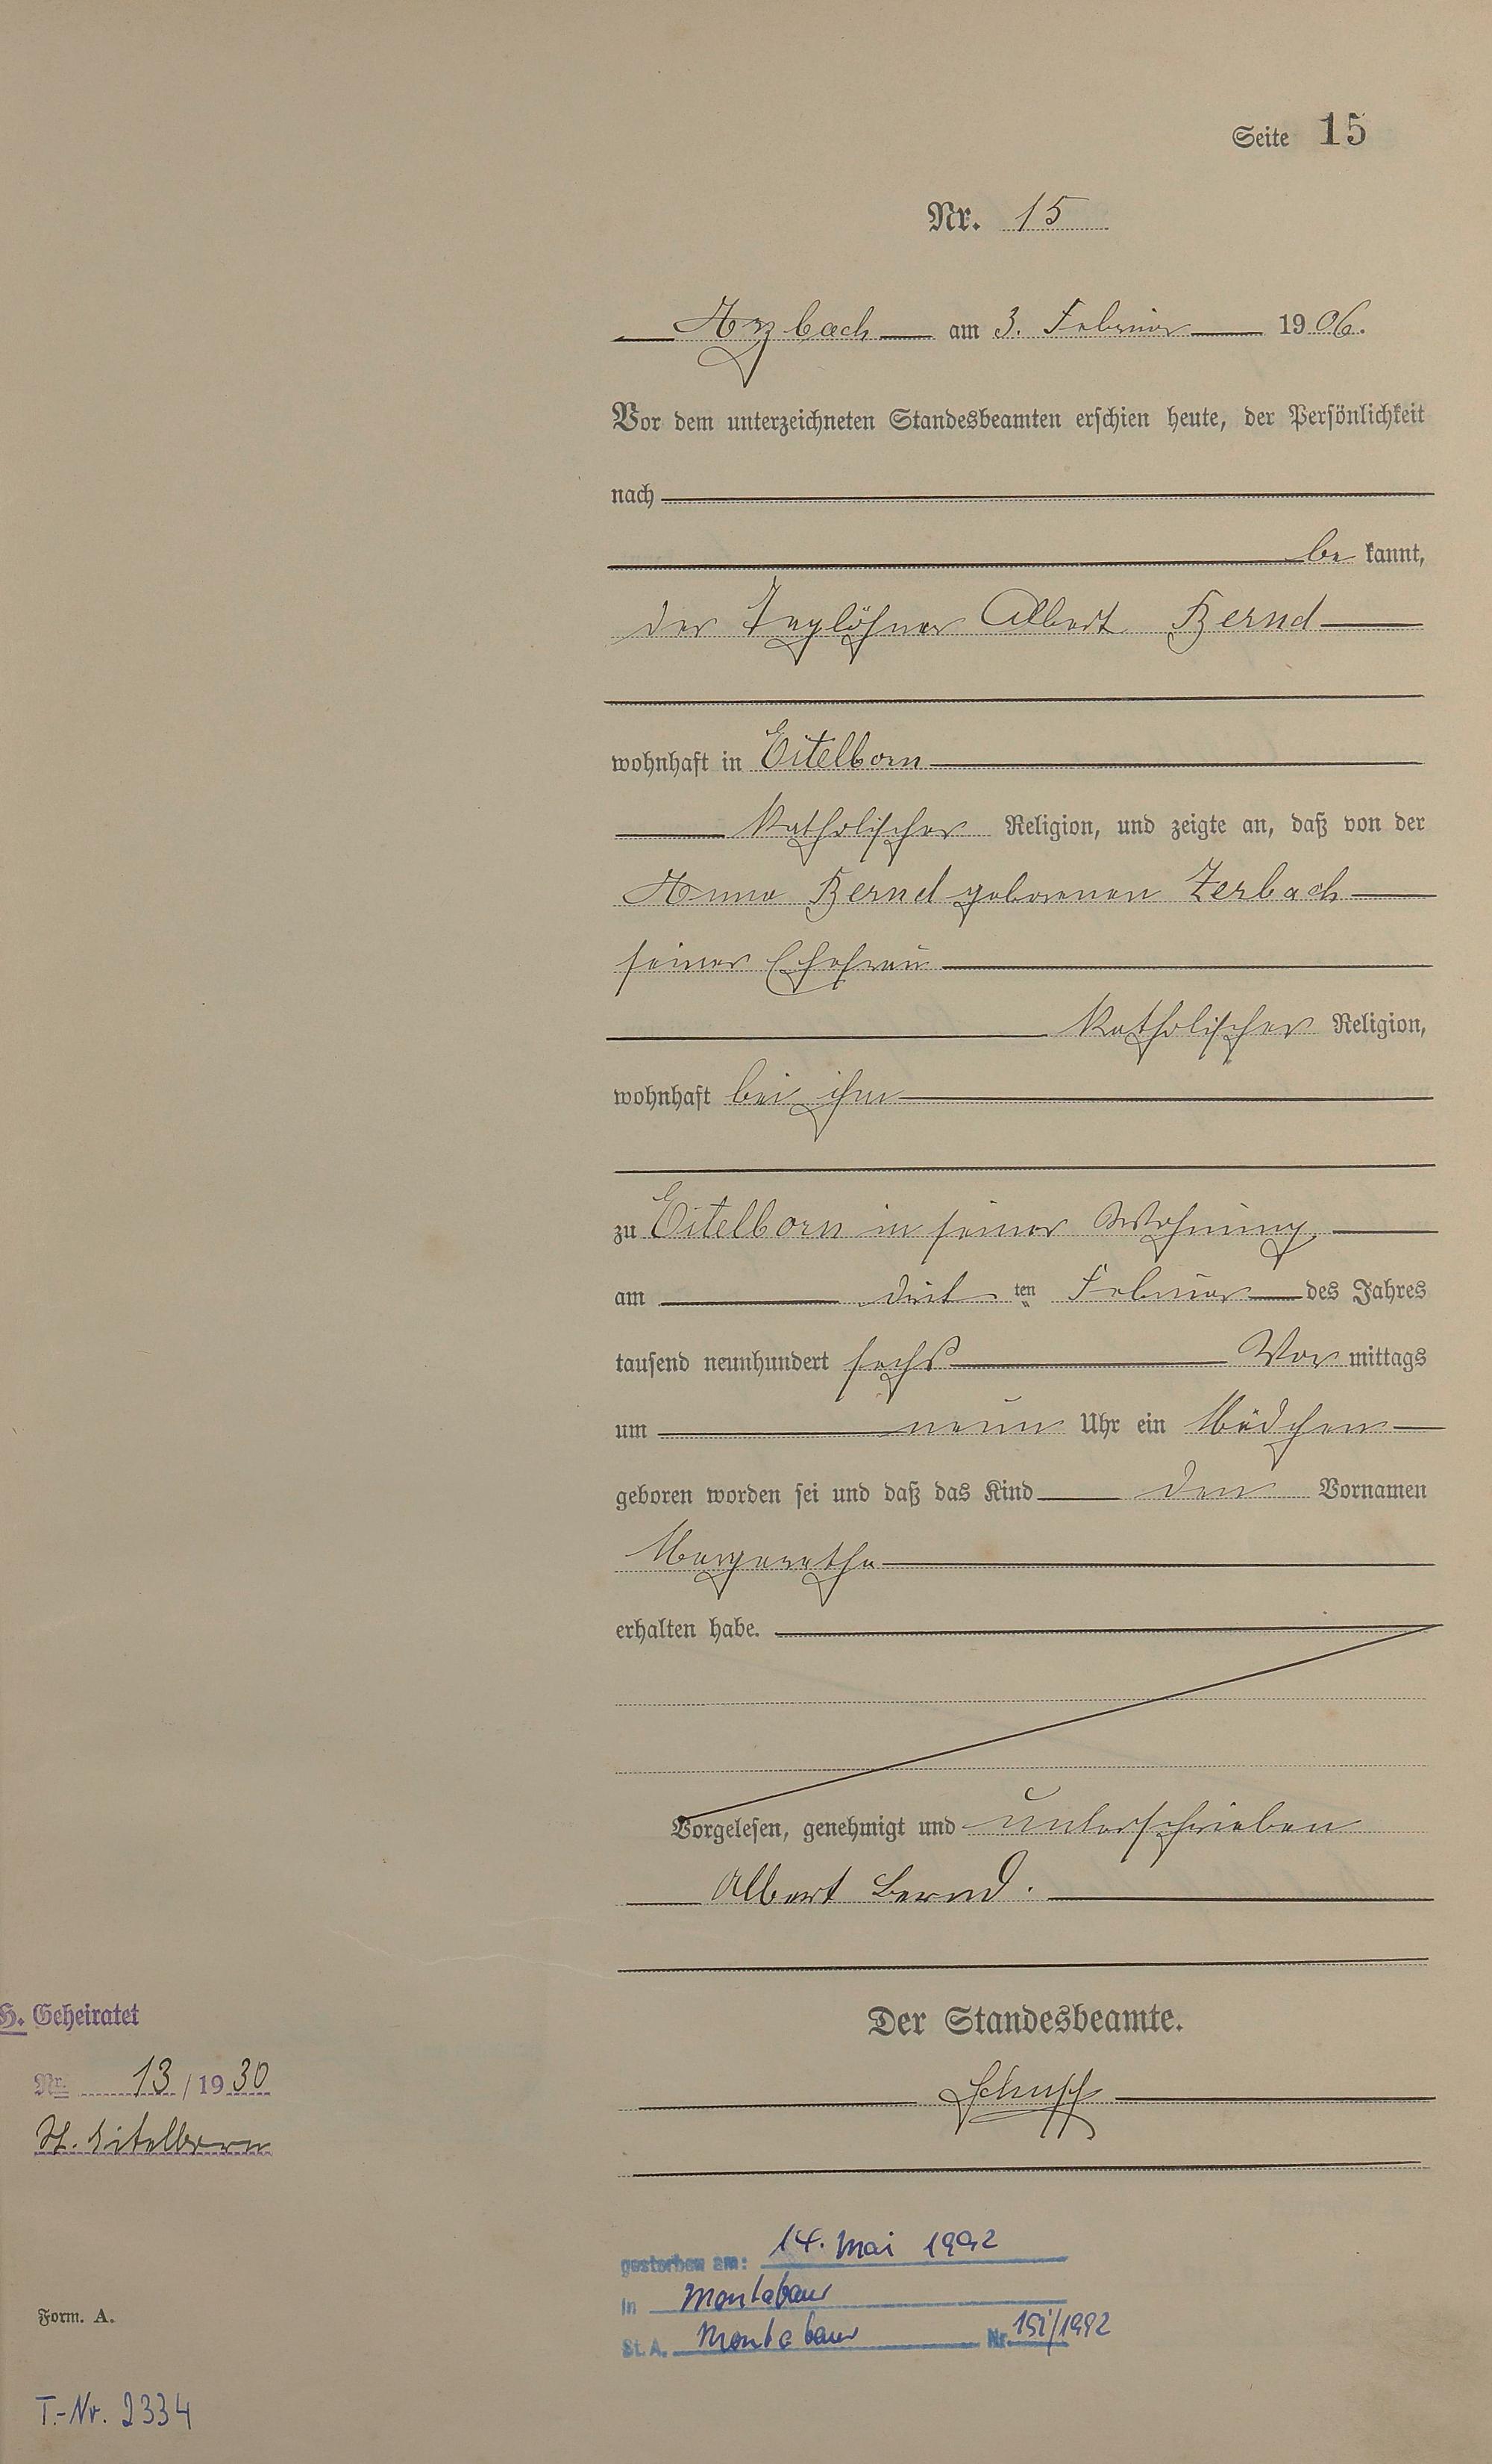 Seite 15
Nr. 15
Arzbach am 3. Februar 1906.
Vor dem unterzeichneten Standesbeamten erschien heute, der Persönlichkeit
nach
be kannt,
der Taglöhner Albert Bernd
wohnhaft in Eitelborn
katholischer Religion, und zeigte an, daß von der
Anna Bernd geborenen Zerbach
seiner Ehefrau
katholischer Religion,
wohnhaft bei ihm
zu Eitelborn in seiner Wohnung
am drit ten Februar des Jahres
tausend neunhundert sechs Vor mittags
um neun Uhr ein Mädchen
geboren worden sei und daß das Kind den Vornamen
Margaretha
erhalten habe.
Vorgelesen, genehmigt und unterschrieben
Albert Bernd.
Der Standesbeamte.
H. Geheiratet
Nr. 13/1930
St. Eitelborn
gestorben am: 14. Mai 1992
in Montabaur
St. A. Montabaur Nr. /1992
Form. A.
T.-Nr. 2334